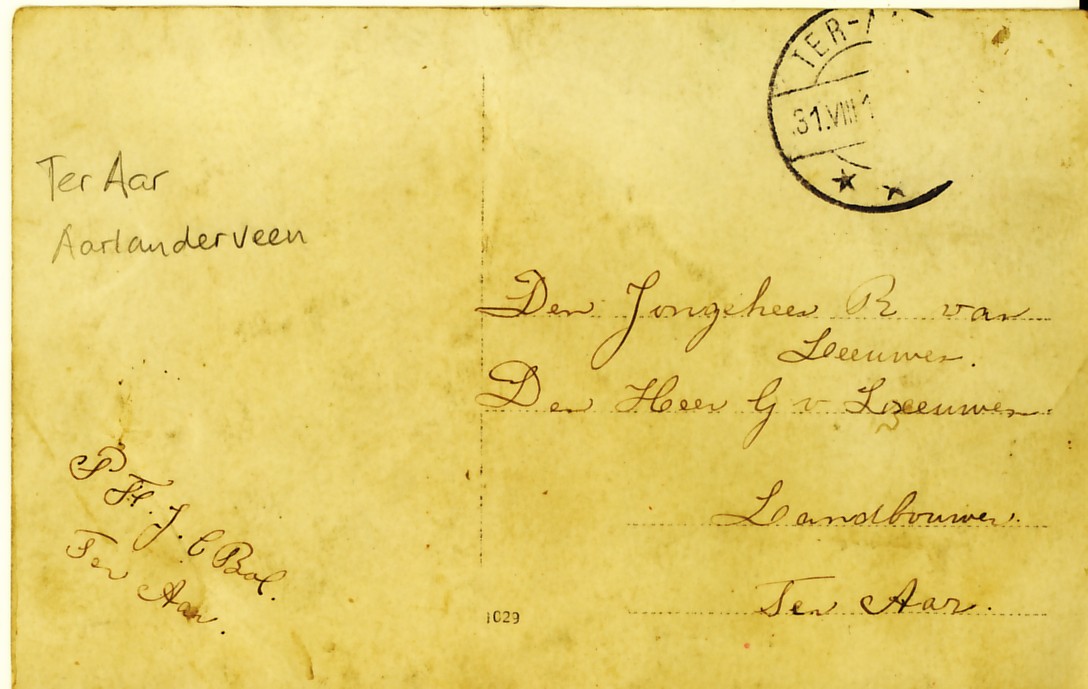 TER-A
31.VIII 1
Ter Aar
Aarlanderveen
Den Jongeheer R van
Leeuwen.
Den Heer G v Leeuwen.
Landbouwer.
Ter Aar.
P H. J. C Bol.
Ter Aar.
1029